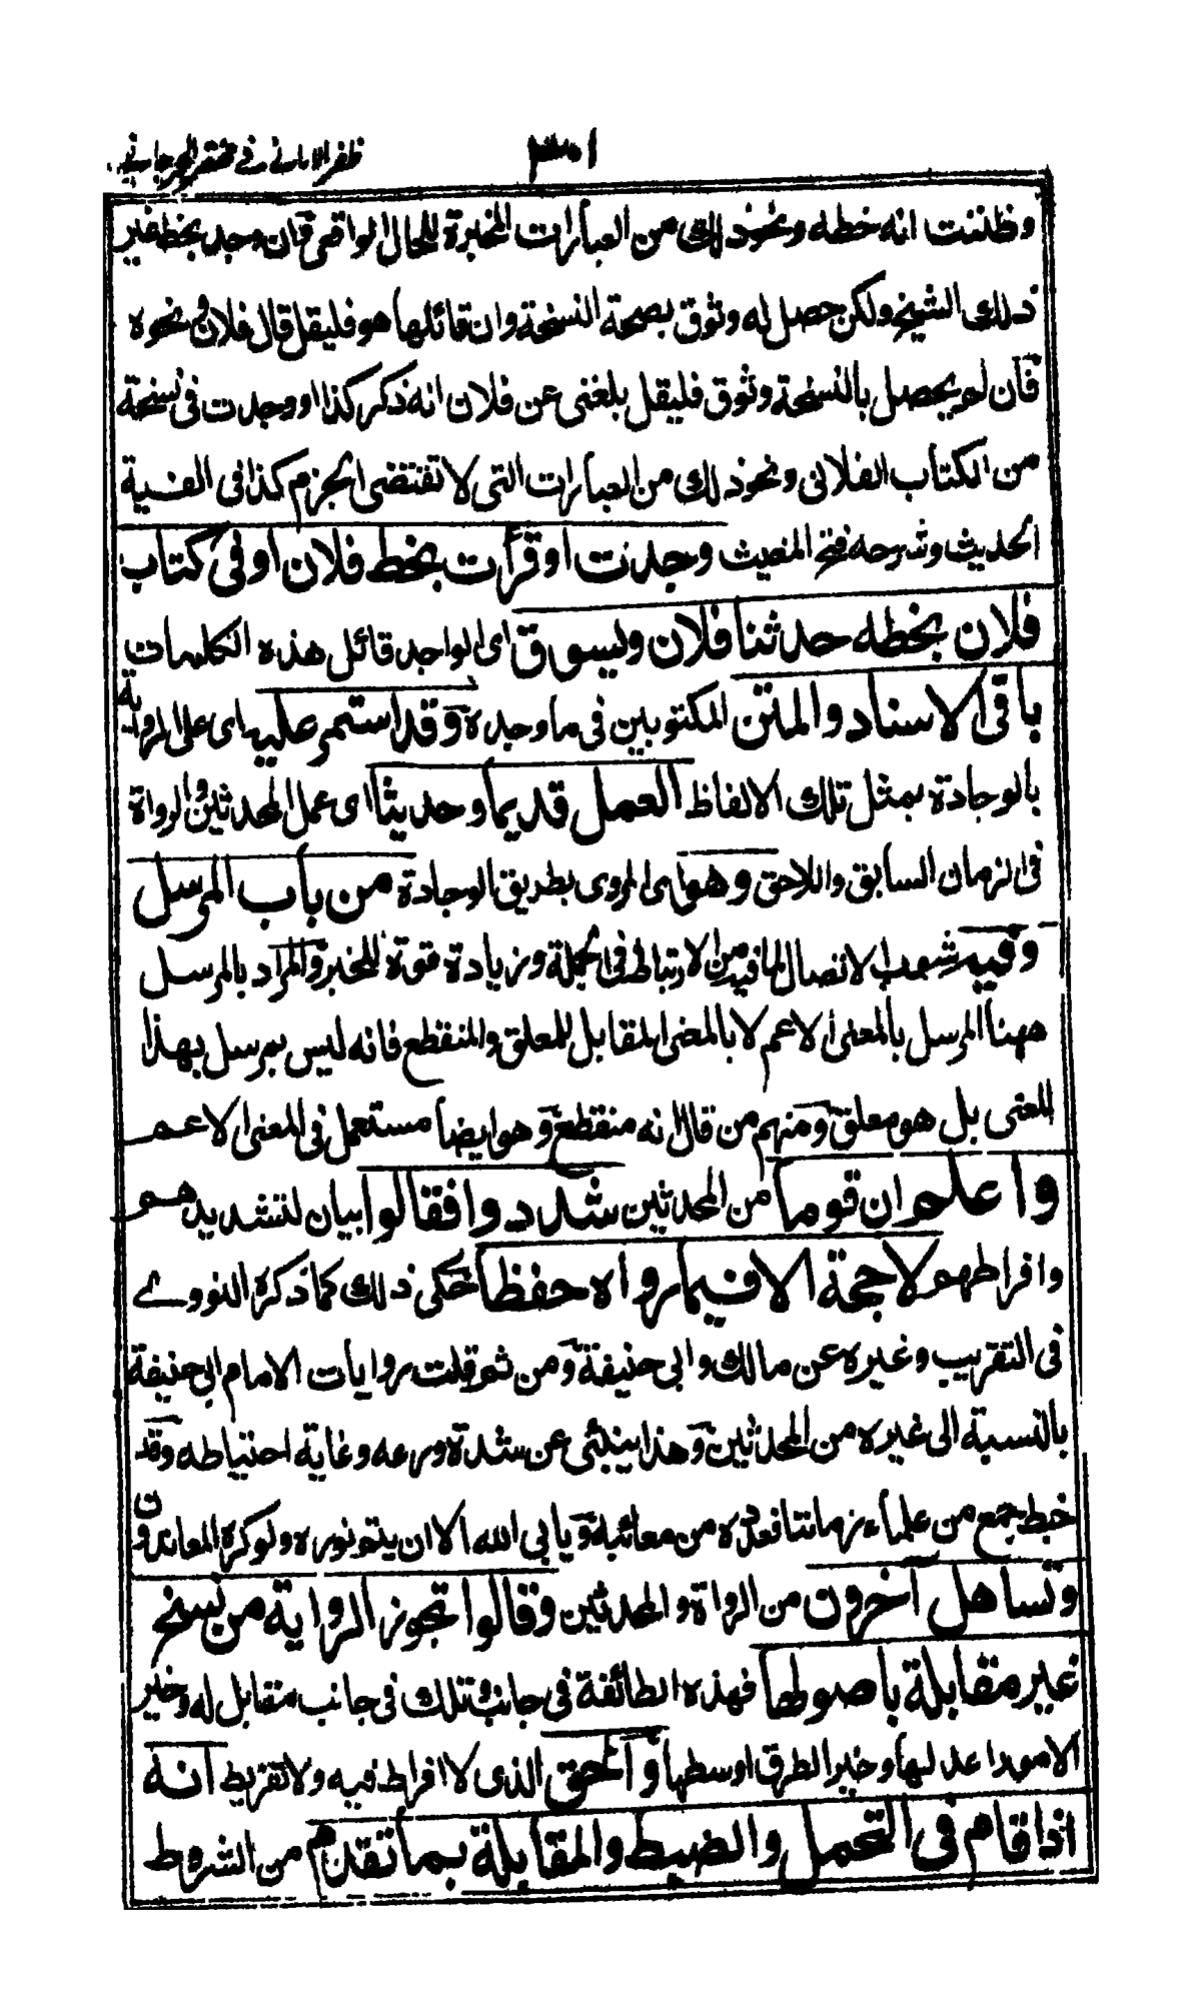 ظفر الامانی فی مختصر الجرجانی
وظننت انه خطه ونحو ذلك من العبارات المخبرة للحال الواقعی فان وجد بخط غير
ذلك الشيخ ولكن حصل له وثوق بصحة النسخة وان قائلها هو فليقل قال فلان ونحوه
فان لم يحصل بالنسخة وثوق فليقل بلغنی عن فلان انه ذكر كذا او وجدت فی نسخة
من الكتاب الفلانی ونحو ذلك من العبارات التی لا تقتضی الجزم كذا فی الفية
الحديث وشرحه فتح المغيث وجدت او قرأت بخط فلان او فی كتاب
فلان بخطه حدثنا فلان ويسوق ای الواجد قائل هذه الكلمات
باقی الاسناد والمتن المكتوبين فی ما وجده وقد استمر عليه ای علی المروية
بالوجادة بمثل تلك الالفاظ العمل قديما وحديثا ای عمل المحدثين والرواة
فی الزمان السابق واللاحق وهو ای المروی بطريق الوجادة من باب المرسل
وفيه شوب الاتصال لما فيه من الارتباط فی الجملة وزيادة قوة للخبر والمراد بالمرسل
ههنا المرسل بالمعنی الاعم لا بالمعنی المقابل للمعلق والمنقطع فانه ليس بمرسل بهذا
المعنی بل هو معلق ومنهم من قال انه منقطع وهو ايضا مستعمل فی المعنی الاعم
واعلم ان قوما من المحدثين شددوا فقالوا بيان لتشديدهم
وافراطهم لا حجة الا فيما رواه حفظا حكی ذلك كما ذكره النووے
فی التقريب وغيره عن مالك وابی حنيفة ومن ثم قلت روايات الامام ابی حنيفة
بالنسبة الی غيره من المحدثين وهذا ينبئ عن شدة ورعه وغاية احتياطه وقد
خبط جمع من علماء زماننا فعده من معائبه ويابی الله الا ان يتم نوره ولو كره المعاندون
وتساهل آخرون من الرواة والمحدثين وقالوا تجوز الرواية من نسخ
غير مقابلة باصولها فهذه الطائفة فی جانب وتلك فی جانب مقابل له وخير
الامور اعدلها وخير الطرق اوسطها والحق الذی لا افراط فيه ولا تفريط انه
اذا قام فی التحمل والضبط والمقابلة بما تقدم من الشروط